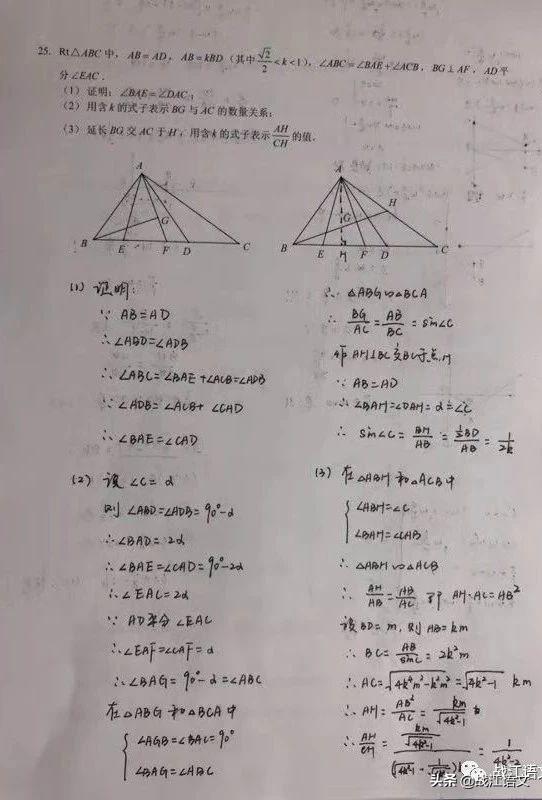 25. Rt△ABC 中，AB=AD，AB=kBD（其中 √2/2<k<1），∠ABC=∠BAE+∠ACB，BG⊥AF，AD平
分∠EAC．
（1）证明：∠BAE=∠DAC；
（2）用含k的式子表示BG与AC的数量关系；
（3）延长BG交AC于H，用含k的式子表示 AH/CH 的值．
A
B E F D C
G
A
H
G
B E M F D C
(1) 证明：
∵ AB=AD
∴ ∠ABD=∠ADB
∴ ∠ABC=∠BAE+∠ACB=∠ADB
∵ ∠ADB=∠ACB+∠CAD
∴ ∠BAE=∠CAD
(2) 设 ∠C=α
则 ∠ABD=∠ADB=90°-α
∴ ∠BAD=2α
∴ ∠BAE=∠CAD=90°-2α
∴ ∠EAC=2α
∵ AD平分∠EAC
∴ ∠EAF=∠CAF=α
∴ ∠BAG=90°-α=∠ABC
在△ABG和△BCA中
∠AGB=∠BAC=90°
∠BAG=∠ABC
∴ △ABG∽△BCA
∴ BG/AC=AB/BC=sin∠C
作AM⊥BC交BC于点M
∵ AB=AD
∴ ∠BAM=∠DAM=α=∠C
∴ sin∠C=BM/AB=½BD/AB=1/2k
(3) 在△ABH和△ACB中
∠ABH=∠C
∠BAH=∠CAB
∴ △ABH∽△ACB
∴ AH/AB=AB/AC 即 AH·AC=AB²
设BD=m，则AB=km
∴ BC=AB/sinC=2k²m
∴ AC=√4k⁴m²-k²m²=√4k²-1 km
∴ AH=AB²/AC=km/√4k²-1
∴ AH/CH=1/4k²-2
头条 @战江语文
战江语文